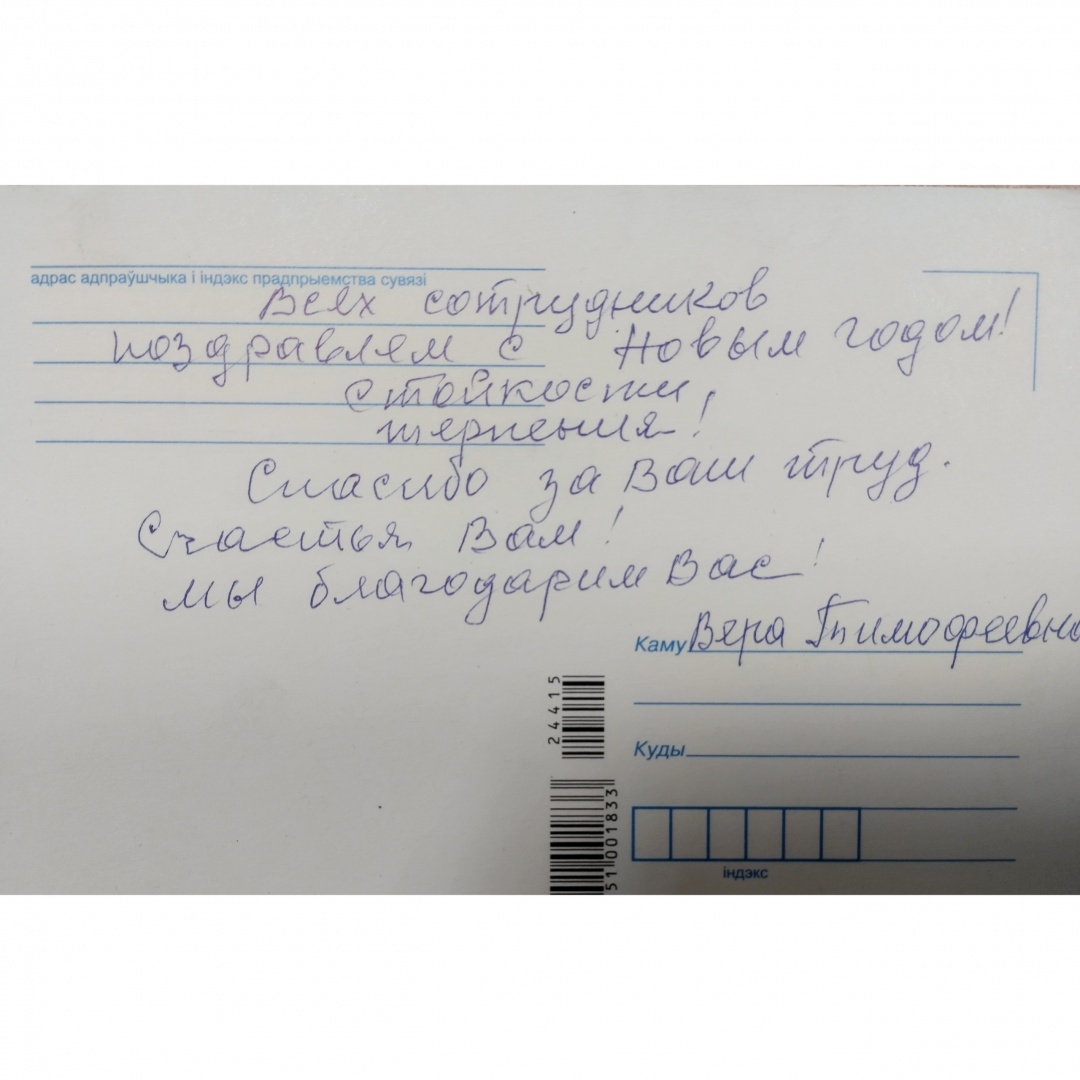 адрас адпраўшчыка і індэкс прадпрыемства сувязі
Всех сотрудников
поздравляем с Новым годом!
Стойкости,
терпения!
Спасибо за Ваш труд.
Счастья Вам!
Мы благодарим Вас!
Каму Вера Тимофеевна
24415
Куды
51 001833
індэкс